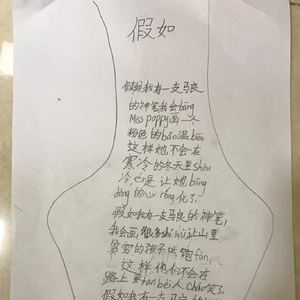 假如
假如我有一支马良
的神笔我会bāng
Miss poppy画一个
粉色的bǎo温bēi
这样她不会在
寒冷的冬天里shòu
冷,ér是让她bīng
dòng的心róng化了。
假如我有一支马良的神笔,
我会画很多shí wù让山里
贫穷的孩子吃饱fàn,
这样他们不会在
路上要fàn bèi人cháo笑了。
假如我有一支马良的